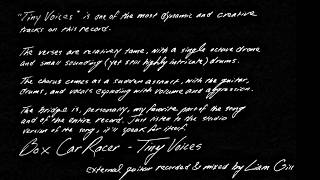 "Tiny Voices" is one of the most dynamic and creative
tracks on this record.
The verses are relatively tame, with a single octave drone
and small sounding (yet still highly intricate) drums.
The chorus comes as a sudden assault, with the guitar,
drums, and vocals expanding with volume and aggression.
The bridge is, personally, my favorite part of the song
and of the entire record. Just listen to the studio
version of the song, it'll speak for itself.
Box Car Racer - Tiny Voices
external guitar recorded & mixed by Liam Gin